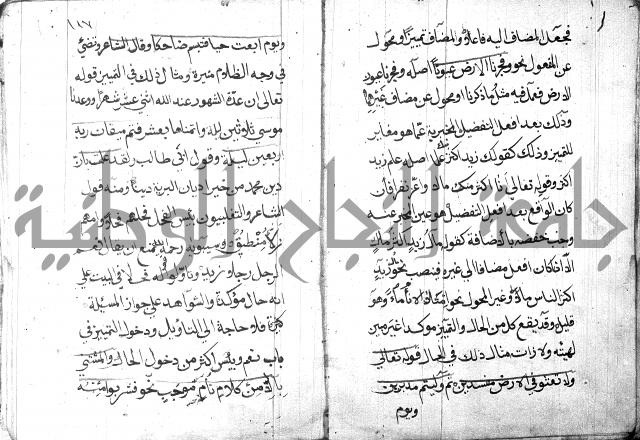 فجعل المضاف اليه فاعلا والمضاف تمييزا ومحول
عن المفعول نحو وفجرنا الارض عيونا اصله وفجرنا عيون
الارض ففعل فيه مثل ما ذكرنا ومحول عن مضاف غيرهما
وذلك بعد افعل التفضيل المخبر به عما هو مغاير
للتمييز وذلك كقولك زيد اكثر منك علما اصله علم زيد
اكثر وقوله تعالى انا اكثر منك مالا واعز نفرا فان
كان الواقع بعد افعل التفضيل هو عين المخبر عنه
وجب خفضه بالاضافة كقولك مال زيد اكثر مال
الا ان كان افعل مضافا الى غيره فينصب نحو زيد
اكثر الناس مالا وغير المحول نحو امتلا الاناء ماء وهو
قليل وقد يقع كل من الحال والتمييز موكدا غير مبين
لهيئة ولا ذات مثال ذلك في الحال قوله تعالى
ولا تعثوا في الارض مفسدين ثم وليتم مدبرين
ويوم
١١٧
ويوم ابعث حيا فتبسم ضاحكا وقال الشاعر وتضئ
في وجه الظلام منيرة ومثال ذلك في التمييز قوله
تعالى ان عدة الشهور عند الله اثنى عشر شهرا وواعدنا
موسى ثلاثين ليلة واتممناها بعشر فتم ميقات ربه
اربعين ليلة وقول ابي طالب ولقد علمت بان
دين محمد من خير اديان البرية دينا ومنه قول
الشاعر والتغلبيون بئس الفحل فحلهم فحلا وامهم
زلاء منطيق وسيبويه رحمه الله يمنع ان يقال نعم
الرجل رجلا زيد وتاولوا فحلا في البيت على
انه حال موكدة والشواهد على جواز المسئلة
كثيرة فلا حاجة الى التاويل ودخول التمييز في
باب نعم وبئس اكثر من دخول الحال والمستثنى
بالا من كلام تام موجب نحو فشربوا منه
جامعة النجاح الوطنية